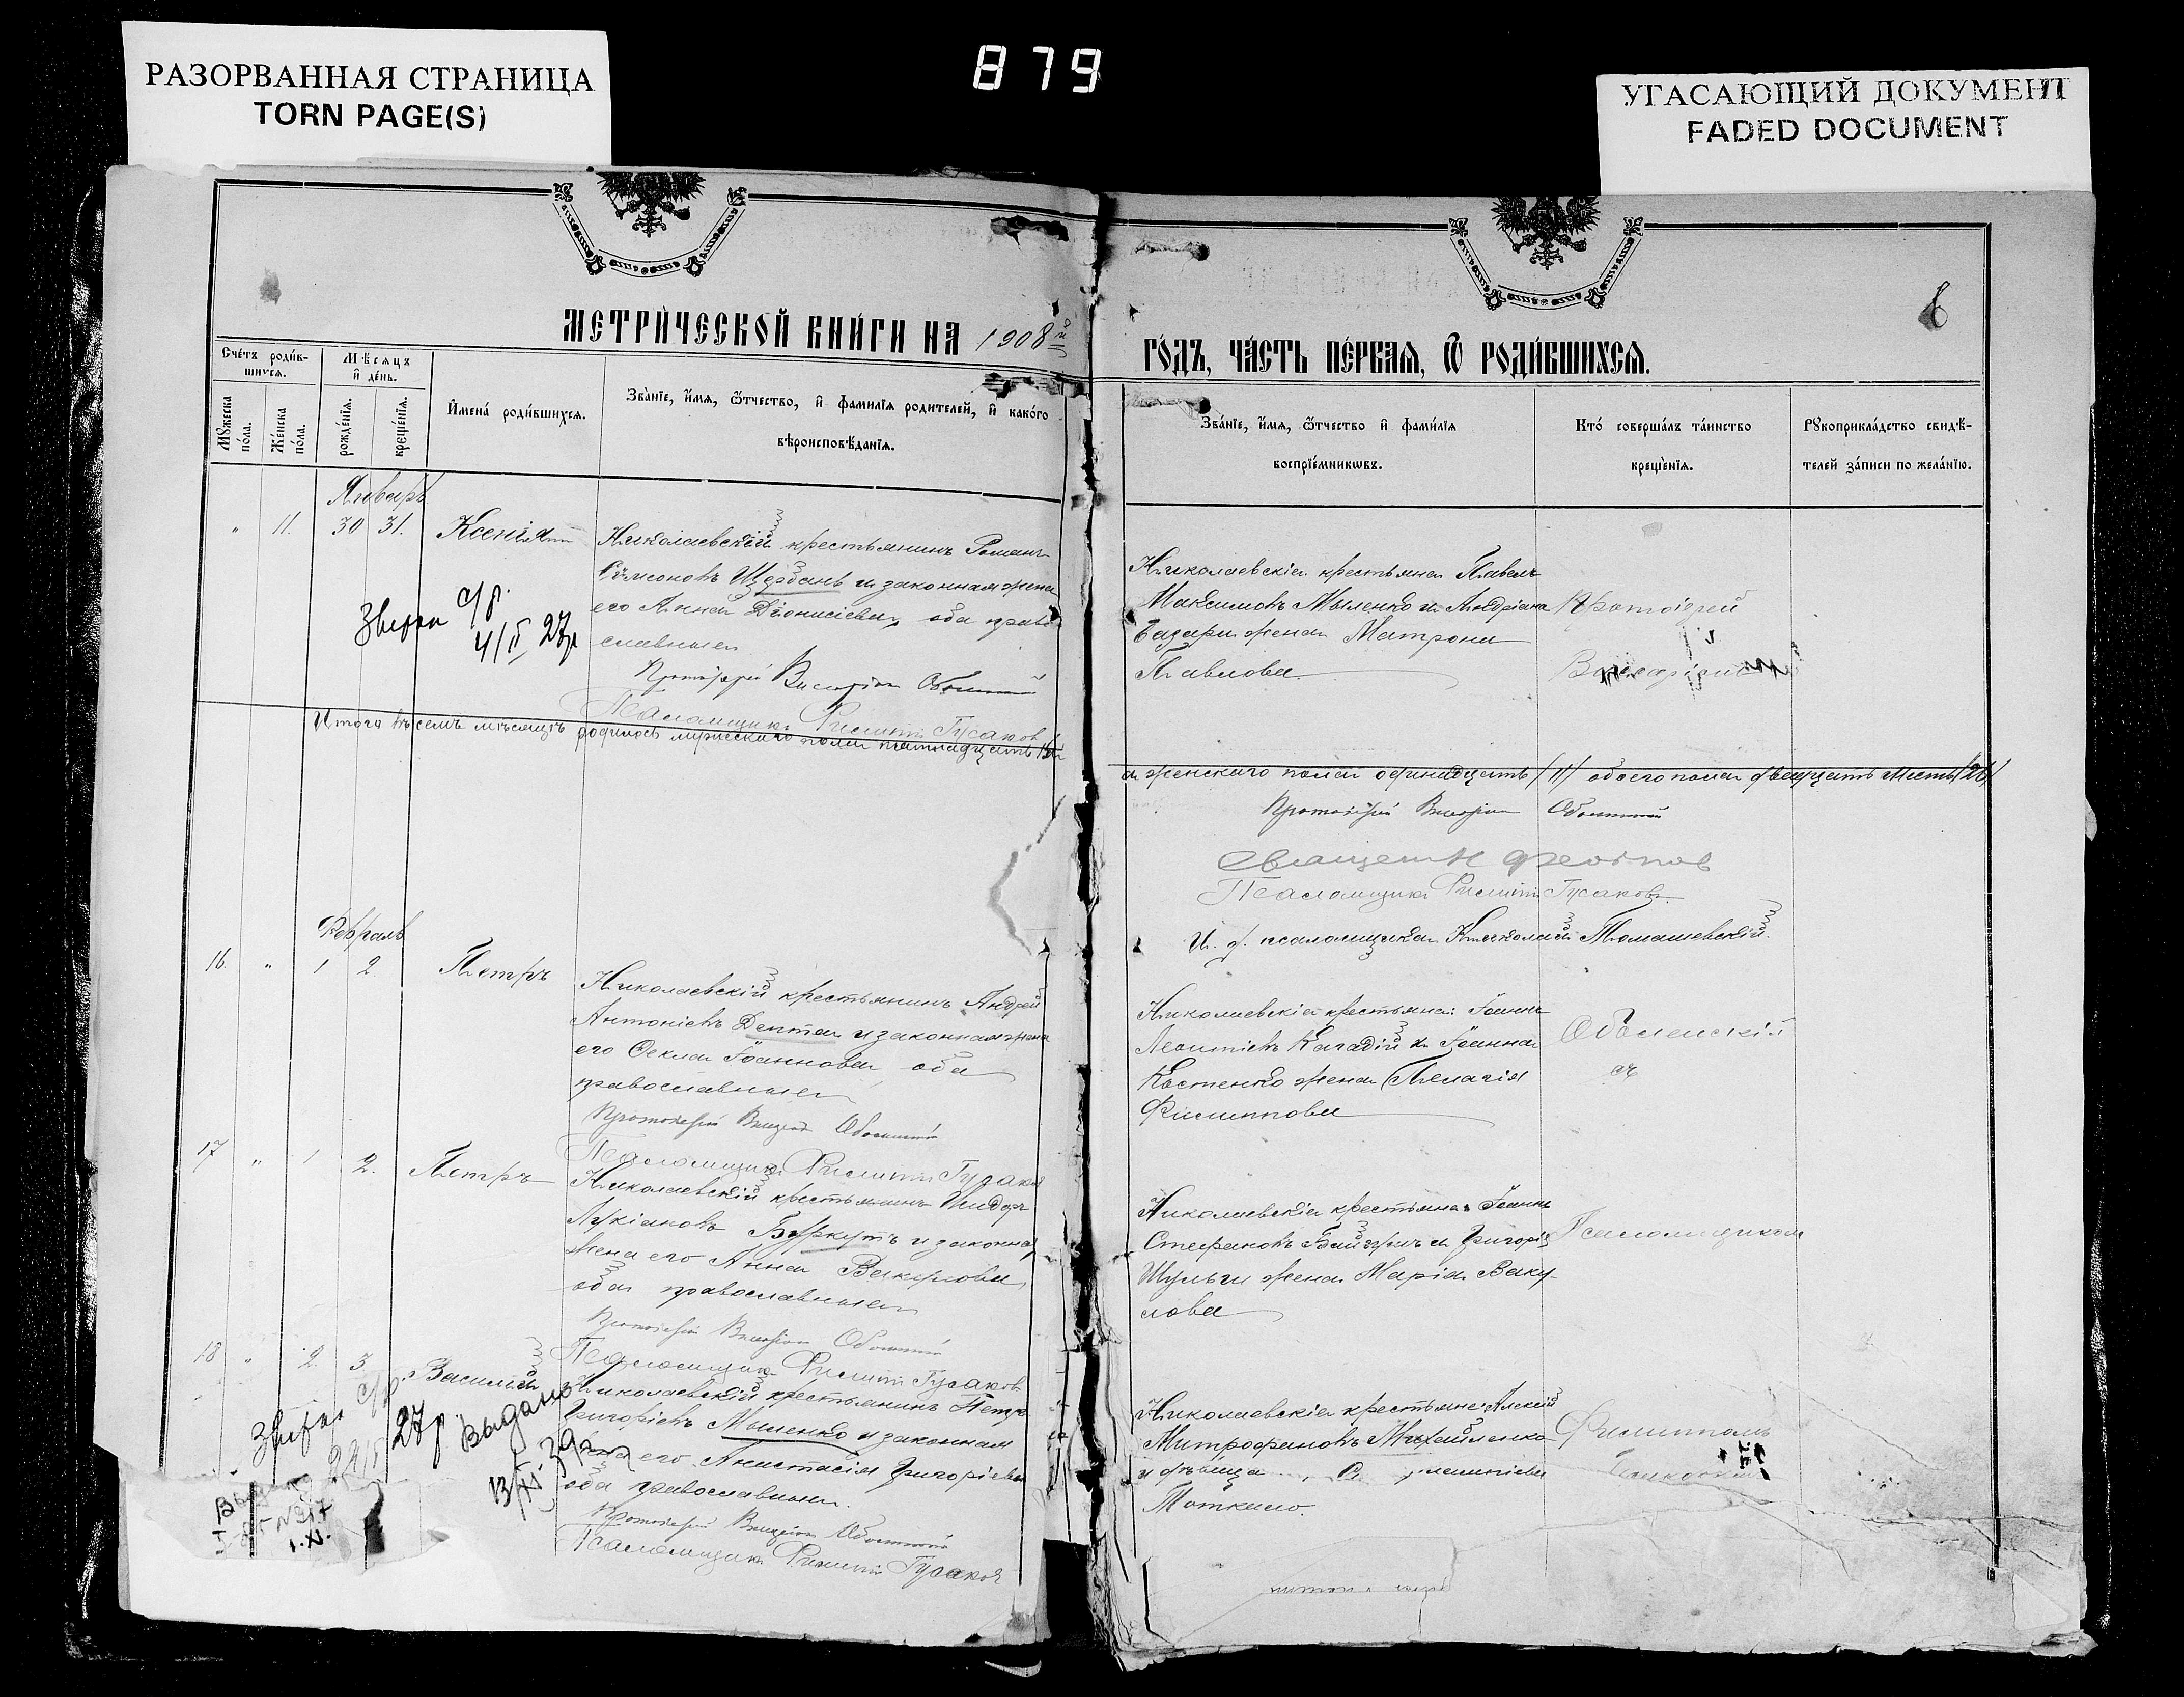 РАЗОРВАННАЯ СТРАНИЦА
TORN PAGE(S)
879
УГАСАЮЩИЙ ДОКУМЕНТ
FADED DOCUMENT
6
МЕТРИ́ЧЕСКОЙ КНИ́ГИ НА 1908й
ГО́ДЪ, ЧА́СТЬ ПЕ́РВАѦ, Ѿ РОДИ́ВШИХСѦ.
Счétъ роди́в-
шихсѧ.
Мѣ́сѧцъ
и҆ де́нь.
Мꙋ́жеска
по́ла.
Же́нска
по́ла.
рожде́нїѧ.
креще́нїѧ.
И҆мена̀ роди́вшихсѧ.
Зва́нїе, и҆́мѧ, ѻ҆́тчество, и҆ фами́лїѧ роди́телей, и҆ како́го
вѣроисповѣ́данїѧ.
Зва́нїе, и҆́мѧ, ѻ҆́тчество и҆ фами́лїѧ
воспрїе́мникѡвъ.
Кто̀ соверша́лъ та́инство
креще́нїѧ.
Рꙋкоприкла́дство свидѣ́-
телей за́писи по жела́нїю.
Январь
" 11. 30 31. Ксенія
Николаевскій крестьянинъ Романъ
Сѵмеоновъ Щербань и законная жена
его Анна Діонисіева, оба право
славные
Протоіерей Виссаріон Оболенский
Псаломщикъ Филиппъ Гусаковъ
Николаевскіе крестьяне Павелъ
Максимовъ Мыленко и Андріана
жена Матрона
Павлова
Протоіерей
Виссаріонъ
27г
Итого въ семъ мѣсяцѣ родилось мужескаго пола пятнадцать /15/
и женскаго пола одинадцать /11/ обоего пола двадцать шесть /26/
Протоіерей Виссарион Оболенский
Священник
Псаломщикъ Филиппъ Гусаковъ.
И. д. псаломщика Николай Томашевскій.
Февраль
16. " 1 2 Петръ
Николаевскій крестьянинъ Андрей
Антоніевъ Депта и законная жена
его Ѳекла Іоаннова, оба
православные
Протоіерей Виссарион Оболенский
Псаломщикъ Филиппъ Гусаков
Николаевскіе крестьяне: Іоаннъ
Леонтіевъ Кагадій и Іоанна
Костенко жена Пелагія
Филиппова
Оболенскій
съ
17 " 1 2. Петръ
Николаевскій крестьянинъ Исидоръ
Лукіановъ Буркутъ и законная
жена его Анна Вакулова,
оба православные
Протоіерей Виссарион Оболенский
Псаломщикъ Филиппъ Гусаков
Николаевскіе крестьяне Іоаннъ
Стефановъ и Григорія
Шульги жена Марія Ваку-
лова
Псаломщикомъ
18 " 2. 3 Василій
Николаевскій крестьянинъ Петръ
Григоріевъ Мыленко и законная
жена его Анастасія Григоріева
оба православные.
Протоіерей Виссарион Оболенский
Псаломщикъ Филиппъ Гусаков
Николаевскіе крестьяне: Алексій
Митрофановъ Михайленко
и дѣвица
Моткало.
Филиппомъ
27г
Выдано
13/XI 39г
I.XI.